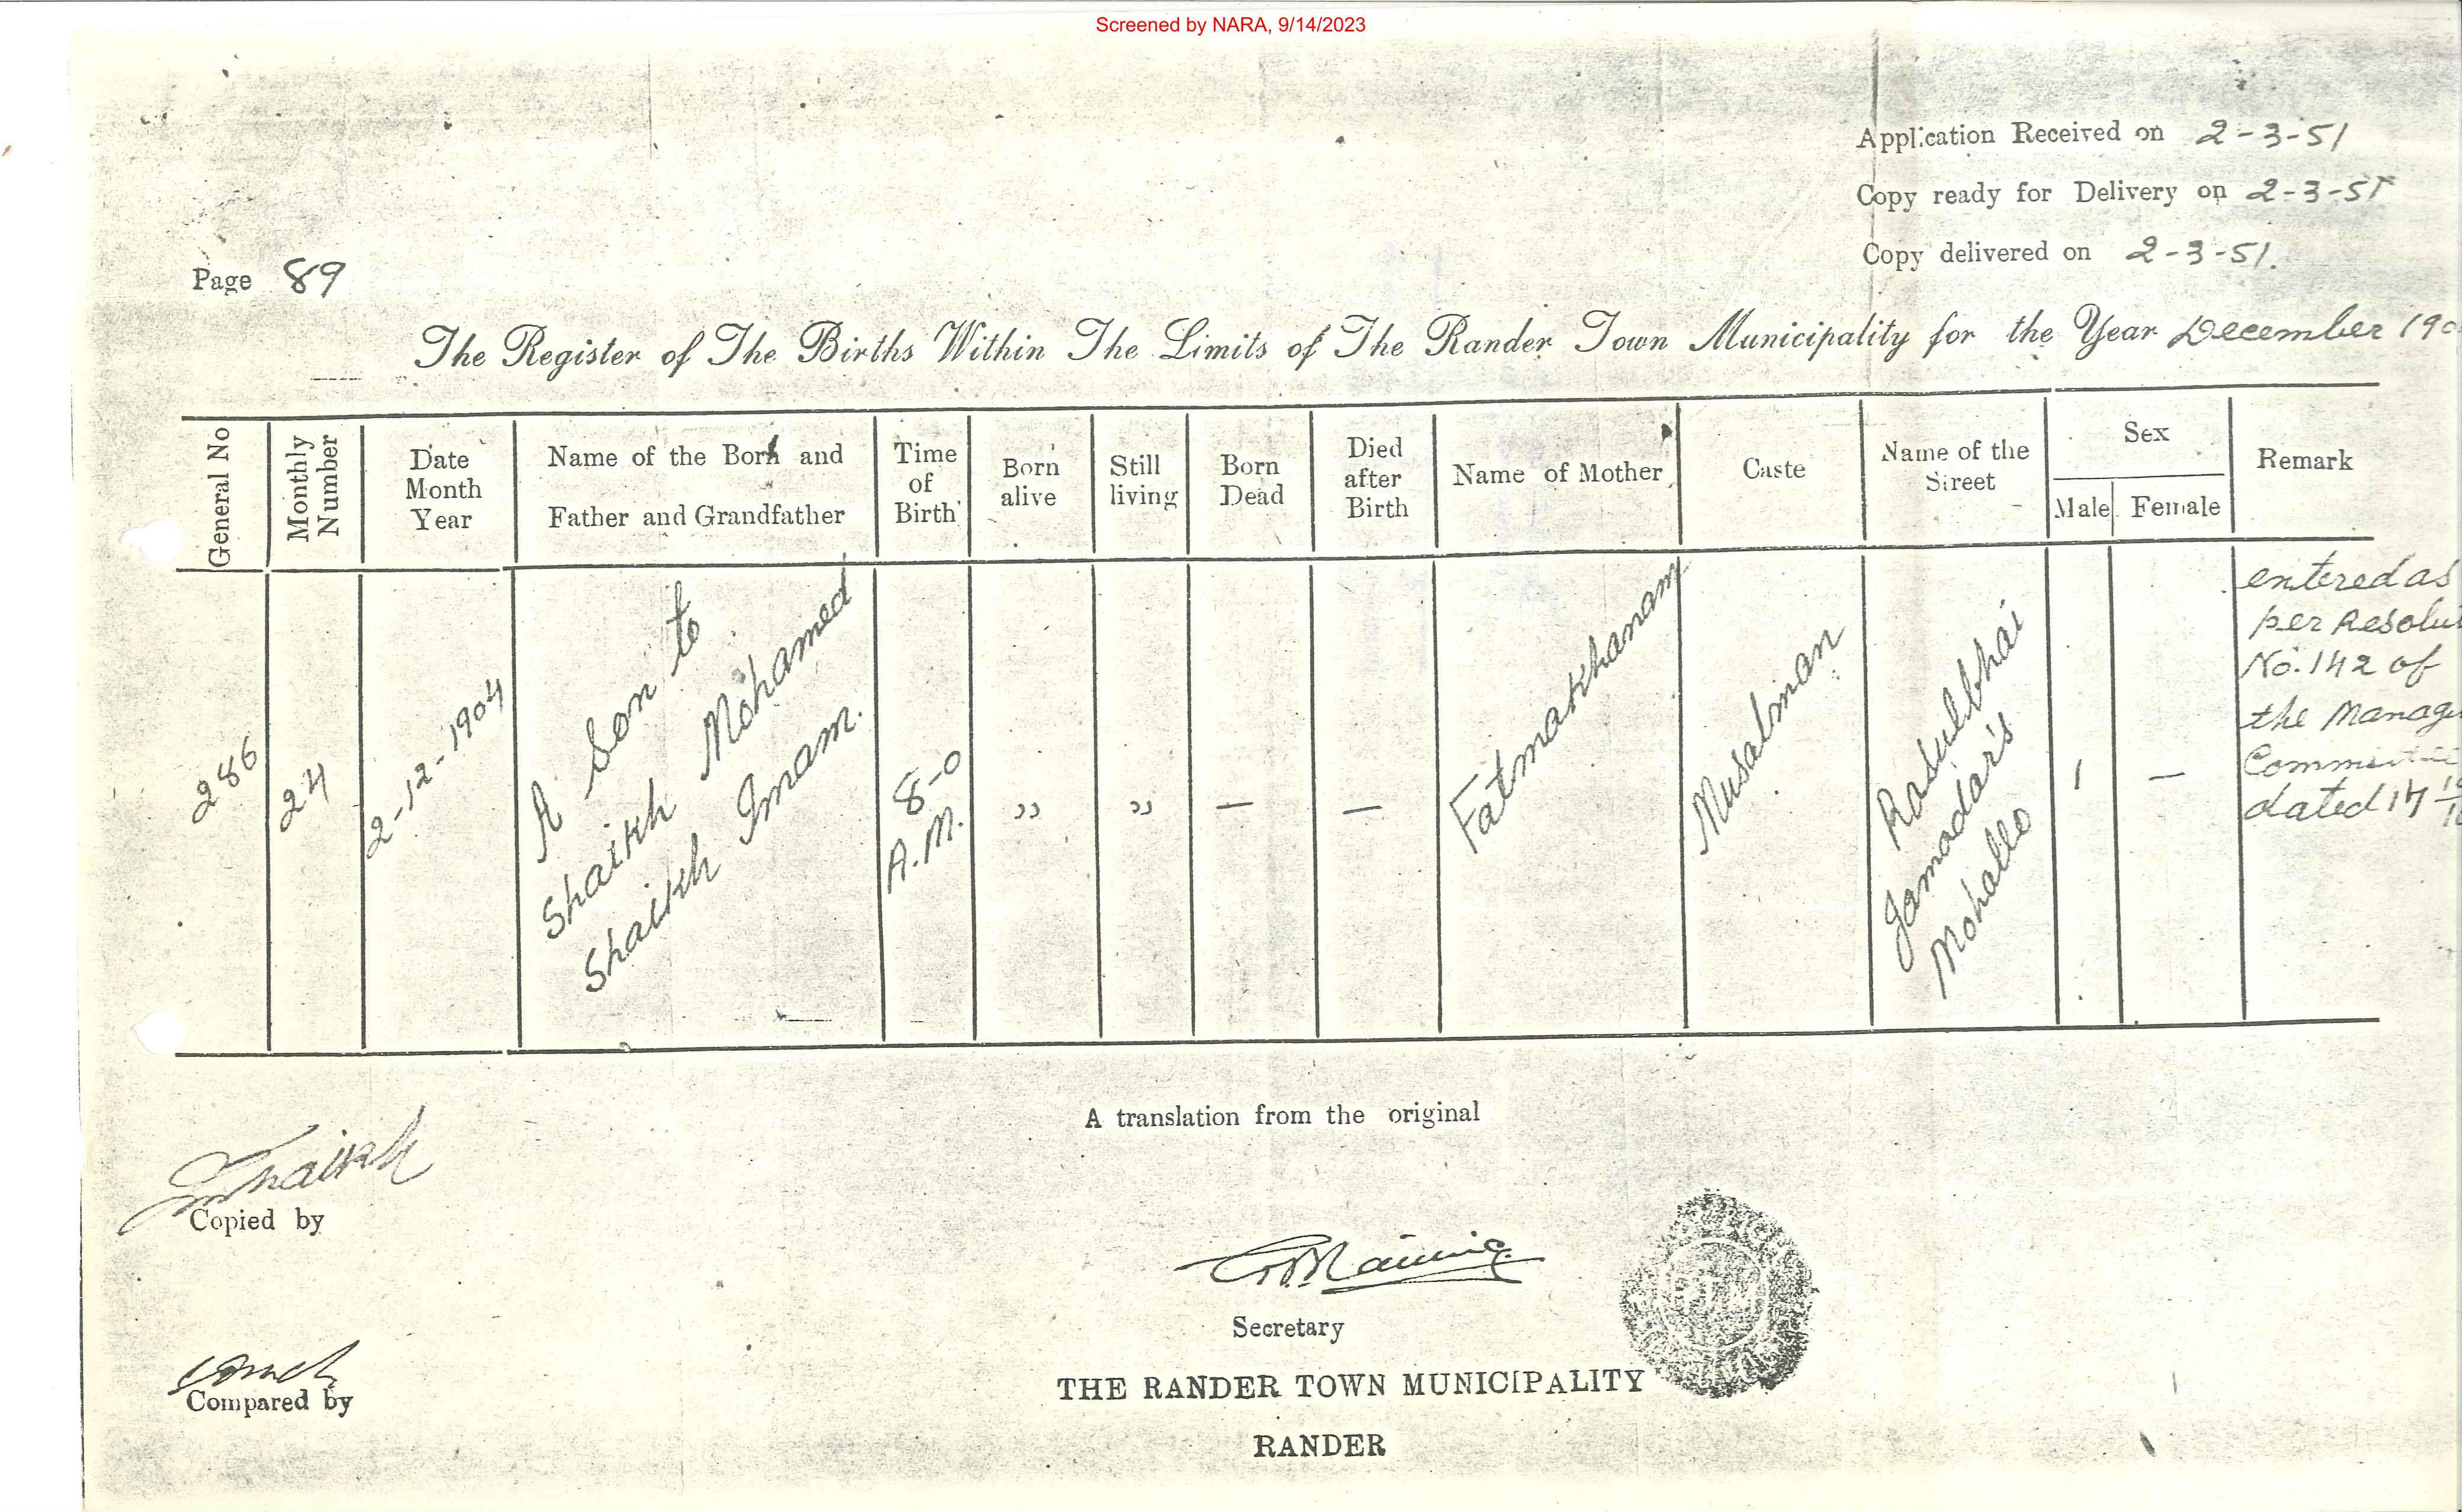 Screened by NARA, 9/14/2023
Application Received on 2-3-51
Copy ready for Delivery on 2-3-51
Copy delivered on 2-3-51.
Page 89
The Register of The Births Within The Limits of The Rander Town Municipality for the Year December 190
General No
Monthly Number
Date Month Year
Name of the Born and Father and Grandfather
Time of Birth
Born alive
Still living
Born Dead
Died after Birth
Name of Mother
Caste
Name of the Street
Sex
Male
Female
Remark
286
24
2-12-1904
A Son to
Shaikh Mohamed
Shaikh Imam.
8-0
A.M.
"
"
—
—
Fatmakhanam
Musalman
Rasulbhai
Jamadar's
Mohallo
1
—
entered as
per Resolut
No. 142 of
the Manag
Committe
dated 17
A translation from the original
Shaikh
Copied by
Secretary
Compared by
THE RANDER TOWN MUNICIPALITY
RANDER